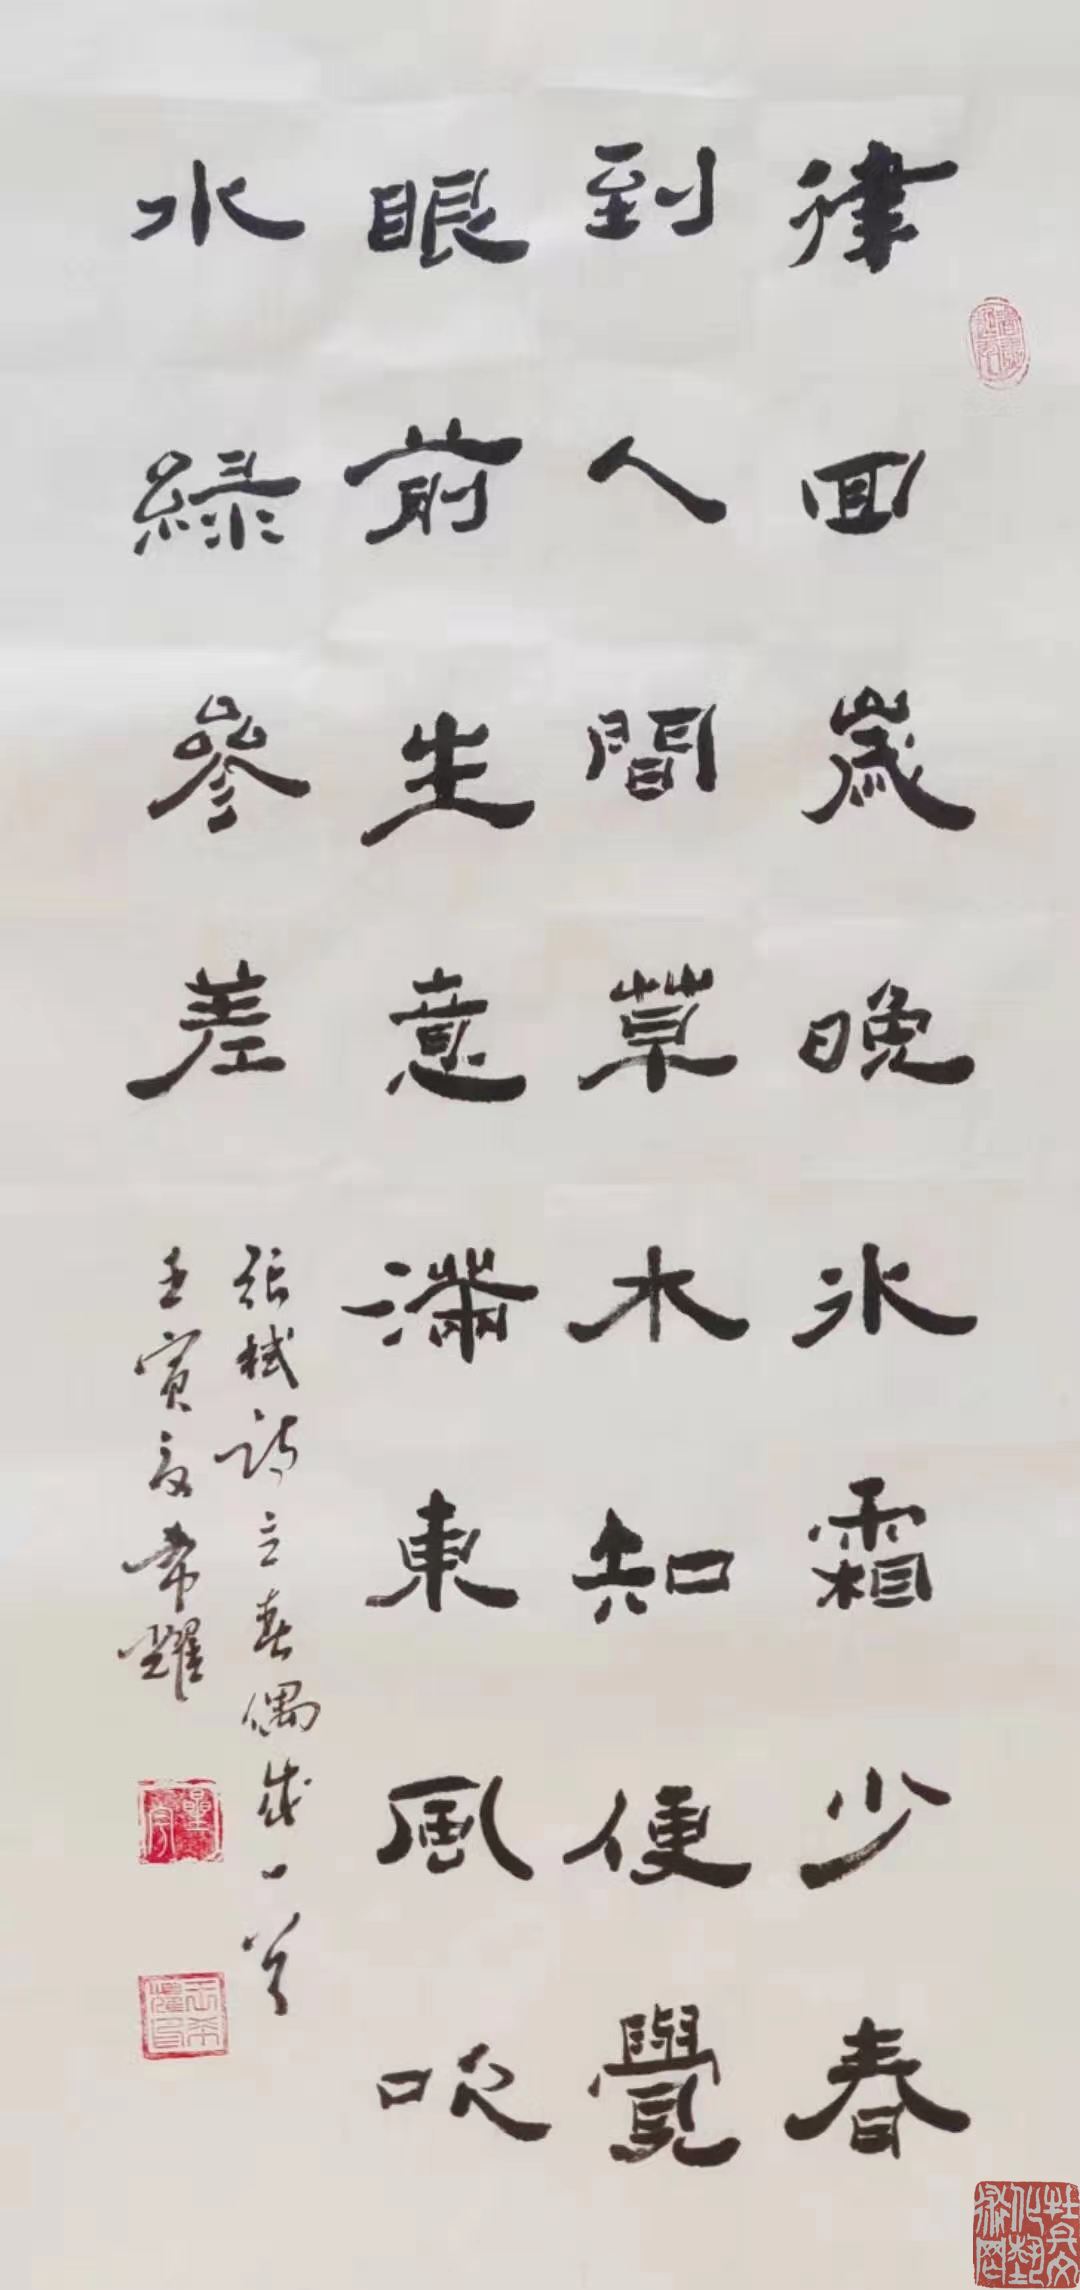 律回歲晚冰霜少春
到人間草木知便覺
眼前生意滿東風吹
水綠參差
張栻詩立春偶成一首
壬寅夏希耀